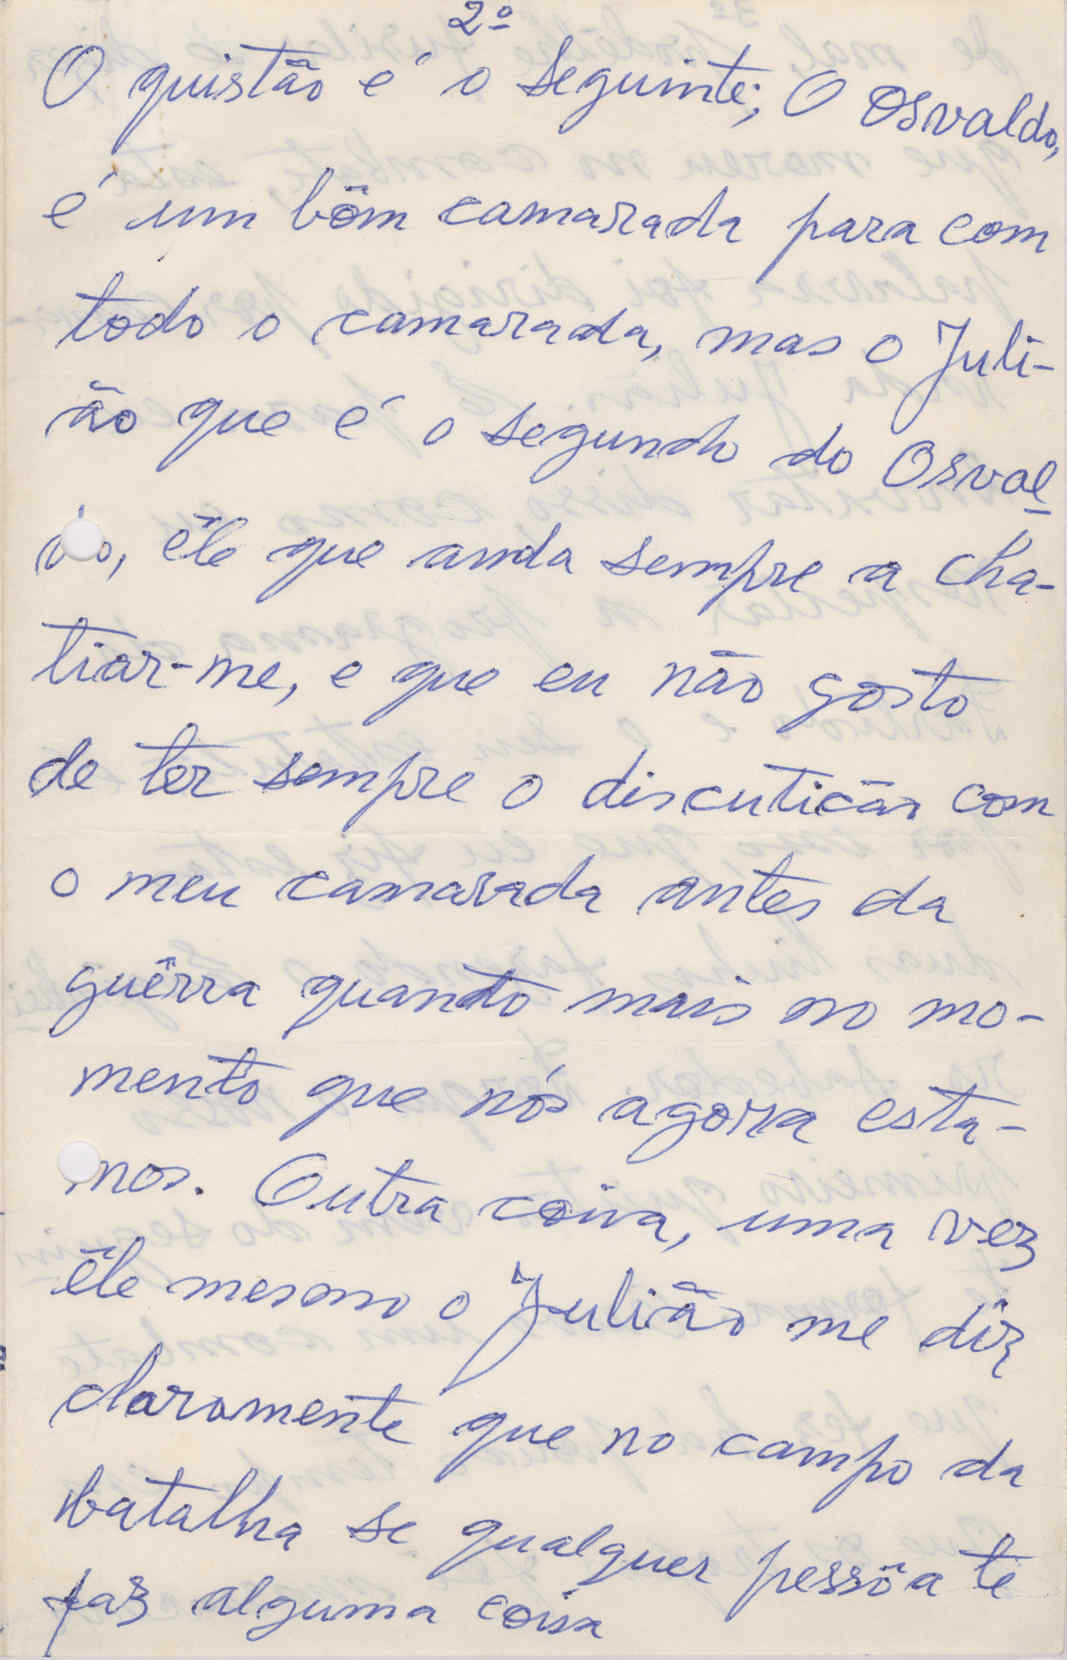 2º
O quistão é o seguinte; O Osvaldo,
é um bôm camarada para com
todo o camarada, mas o Juli-
ão que é o segundo do Osval
do, êle que anda sempre a cha-
tiar-me, e que eu não gosto
de ter sempre o discutição com
o meu camarada antes da
guêrra quanto mais no mo-
mento que nós agora esta-
mos. Outra coisa, uma vez
êle mesmo o Julião me diz
claramente que no campo da
batalha se qualquer pessôa te
faz alguma coisa